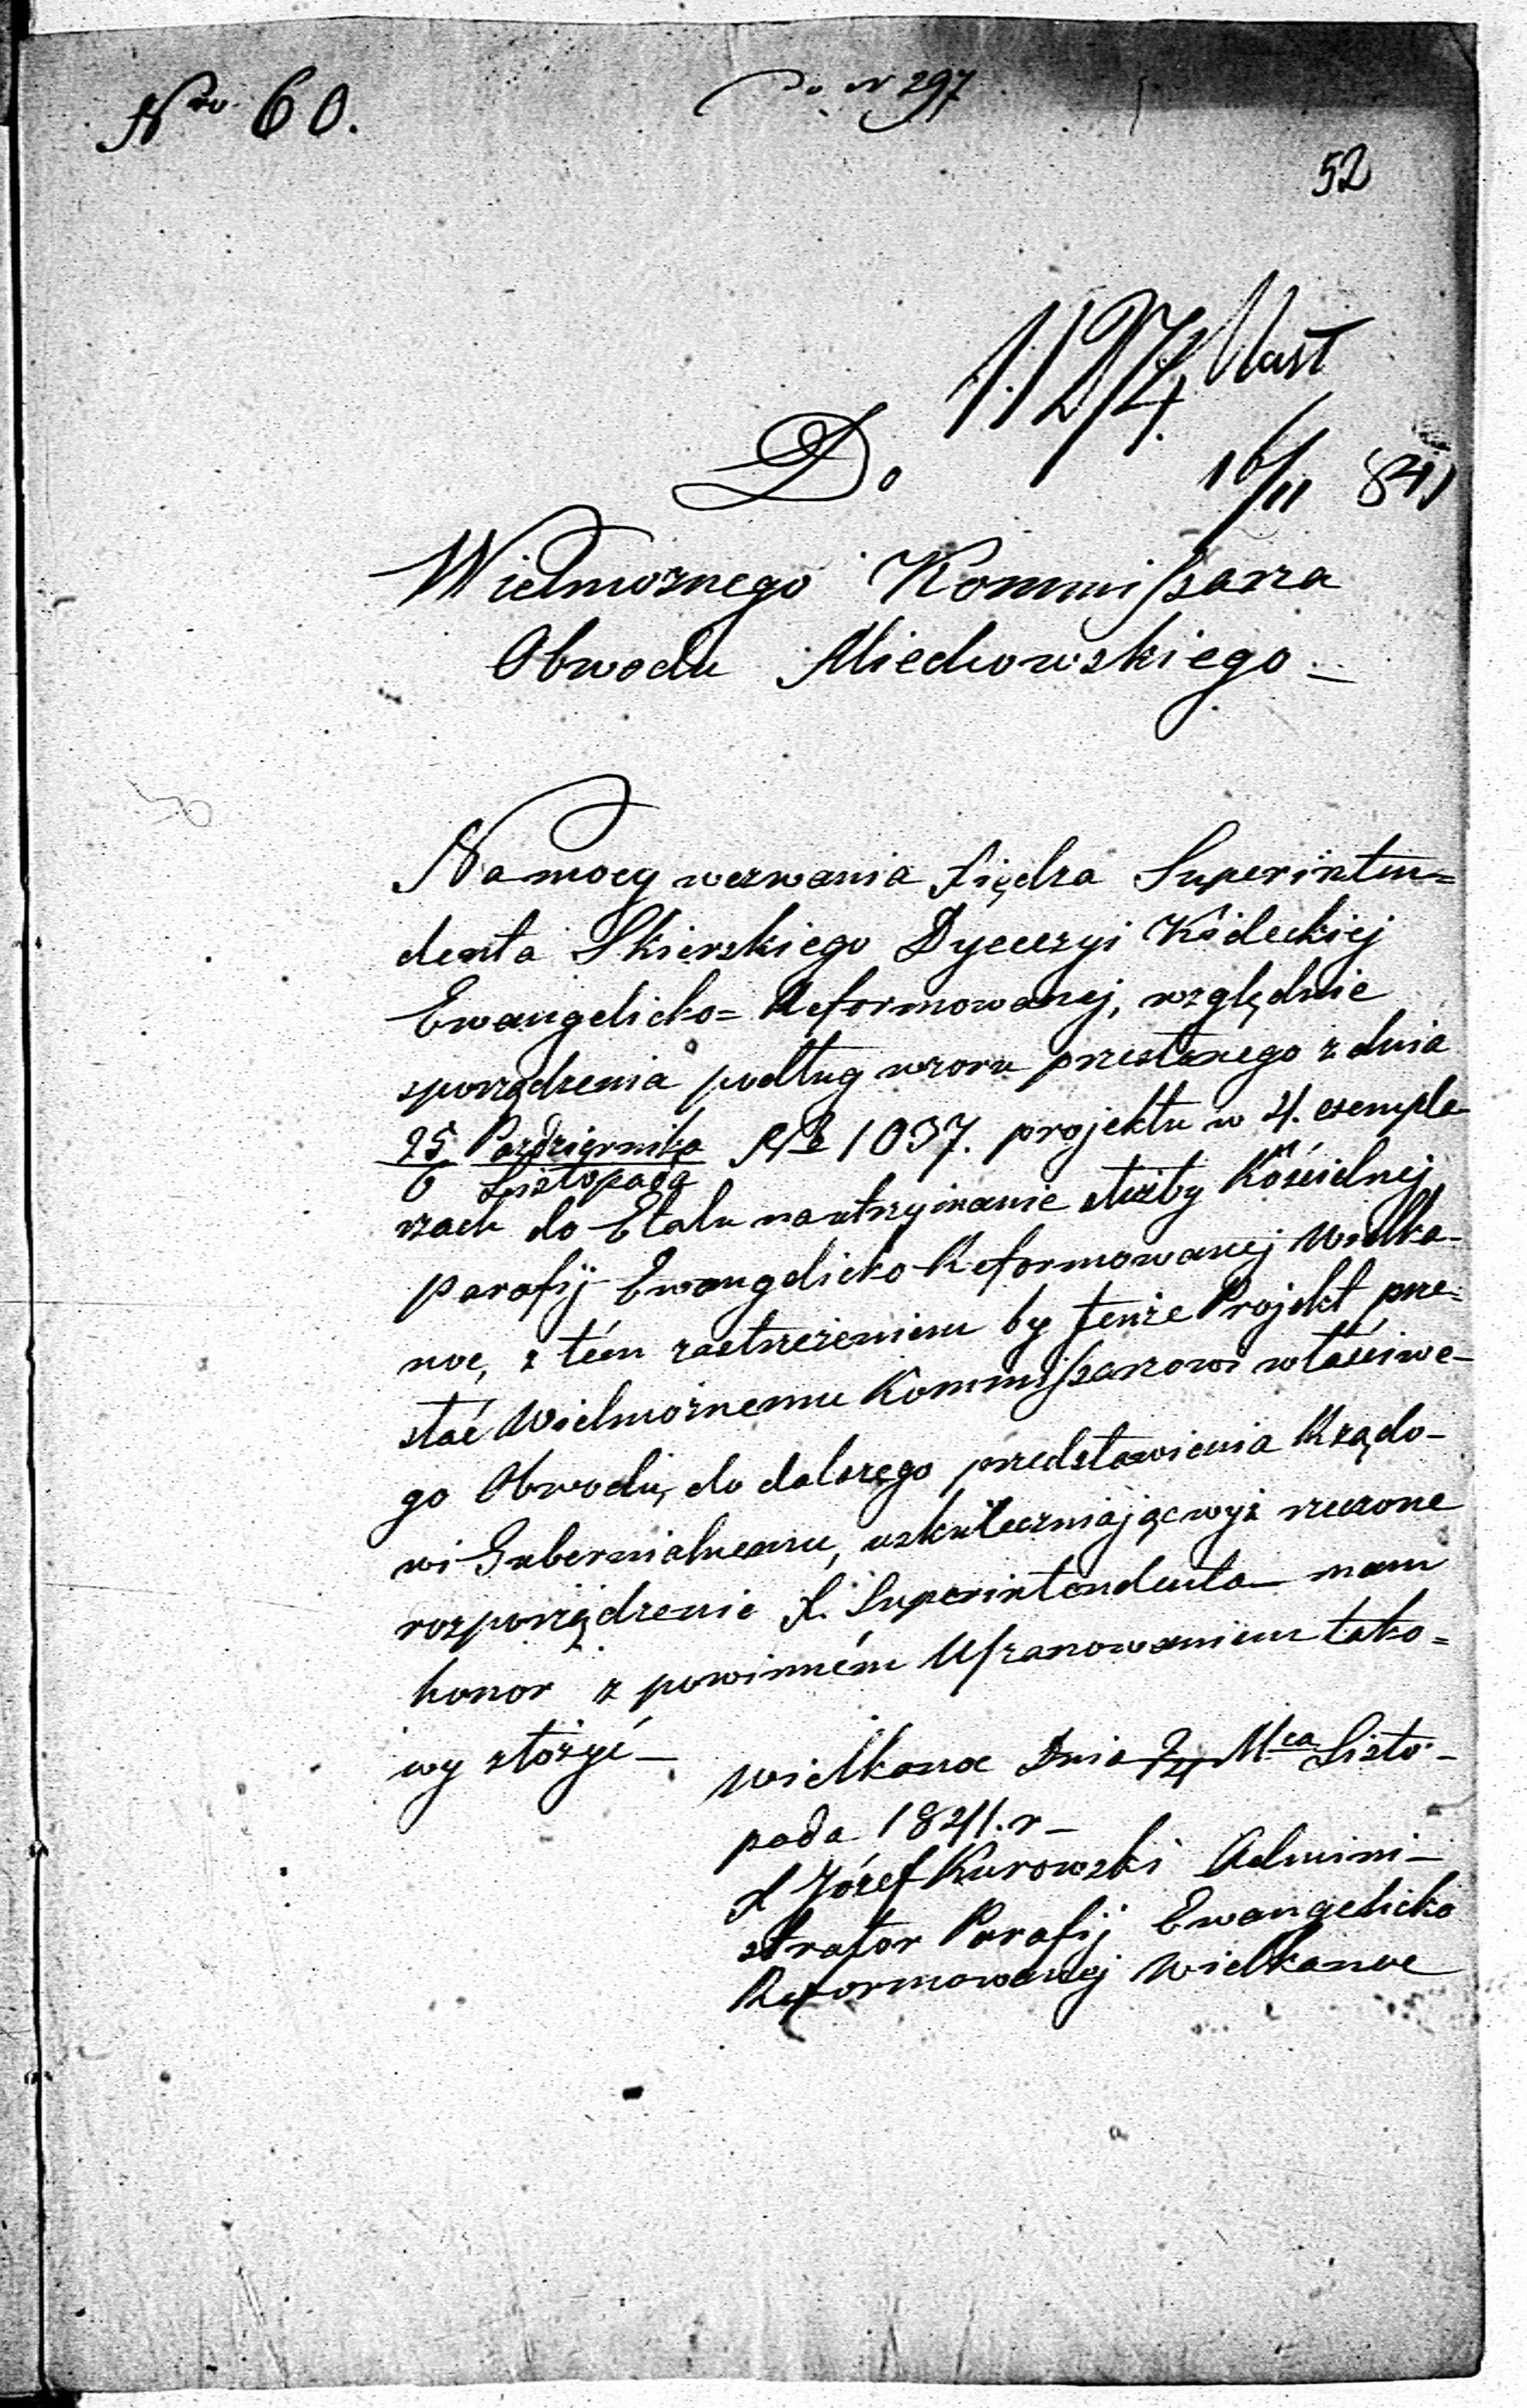 Nro 60.
do N 297
52
16/11 841
Do
Wielmożnego Kommissarza
Obwodu Miechowskiego _
Na mocy wezwania Xiędza Superinten=
denta Skierskiego Dyecezyi Kieleckiej
Ewangelicko=Reformowanej, względnie
sporządzenia podług wzoru przesłanego z dnia
25 Pazdziernika / 6 Listopada No 1037. projektu w 4. exempla-
rzach do Etatu na utrzymanie służby Kościelnej
parafij Ewangelicko Reformowanej Wielka-
noc, z tém zastrzeżeniem by tenże Projekt prze=
słać Wielmożnemu Kommissarzowi właściwe-
go Obwodu, do dalszego przedstawienia Rządo-
wi Gubernialnemu, uskuteczniając wyż rzeczone
rozporządzenie X. Superintendenta mam
honor z powinném Uszanowaniem tako=
wy złożyć _
Wielkanoc Dnia Mca Listo-
pada 1841. r _
X Józef Kurowski Admini-
strator Parafij Ewangelicko
Reformowanej Wielkanoc